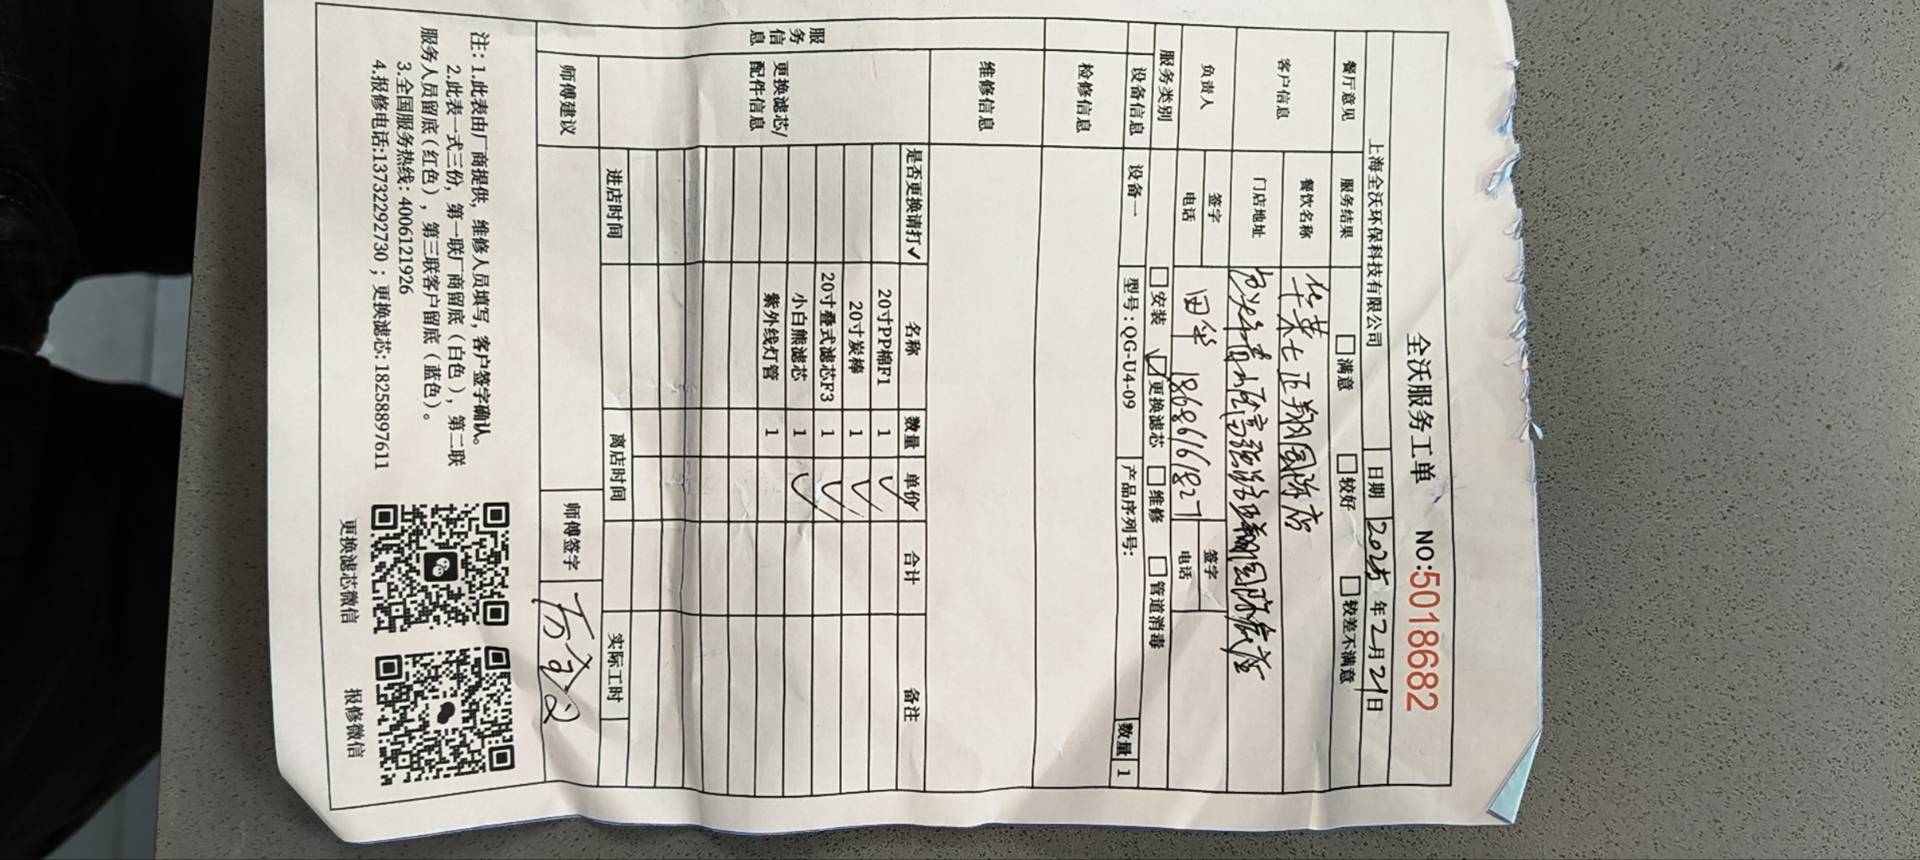 全沃服务工单 NO:5018682
上海全沃环保科技有限公司 日期 2025年2月21日
餐厅意见 服务结果 □满意 □较好 □较差不满意
客户信息 餐饮名称 华莱士正翔国际店
门店地址 正翔国际
负责人 签字 电话 田华 18686161827 签字 电话
服务类别 □安装 ☑更换滤芯 □维修 □管道消毒
设备信息 设备一 型号:QG-U4-09 产品序列号: 数量 1
服务信息
检修信息
维修信息
更换滤芯/配件信息 是否更换请打✓ 名称 数量 单价 合计 备注
20寸PP棉F1 1 ✓
20寸炭棒 1 ✓
20寸叠式滤芯F3 1 ✓
小白熊滤芯 1 ✓
紫外线灯管 1
进店时间 离店时间 实际工时
师傅建议 师傅签字
注:1.此表由厂商提供,维修人员填写,客户签字确认。
2.此表一式三份,第一联厂商留底(白色),第二联
服务人员留底(红色),第三联客户留底(蓝色)。
3.全国服务热线:4006121926
4.报修电话:13732292730;更换滤芯:18258897611
更换滤芯微信 报修微信